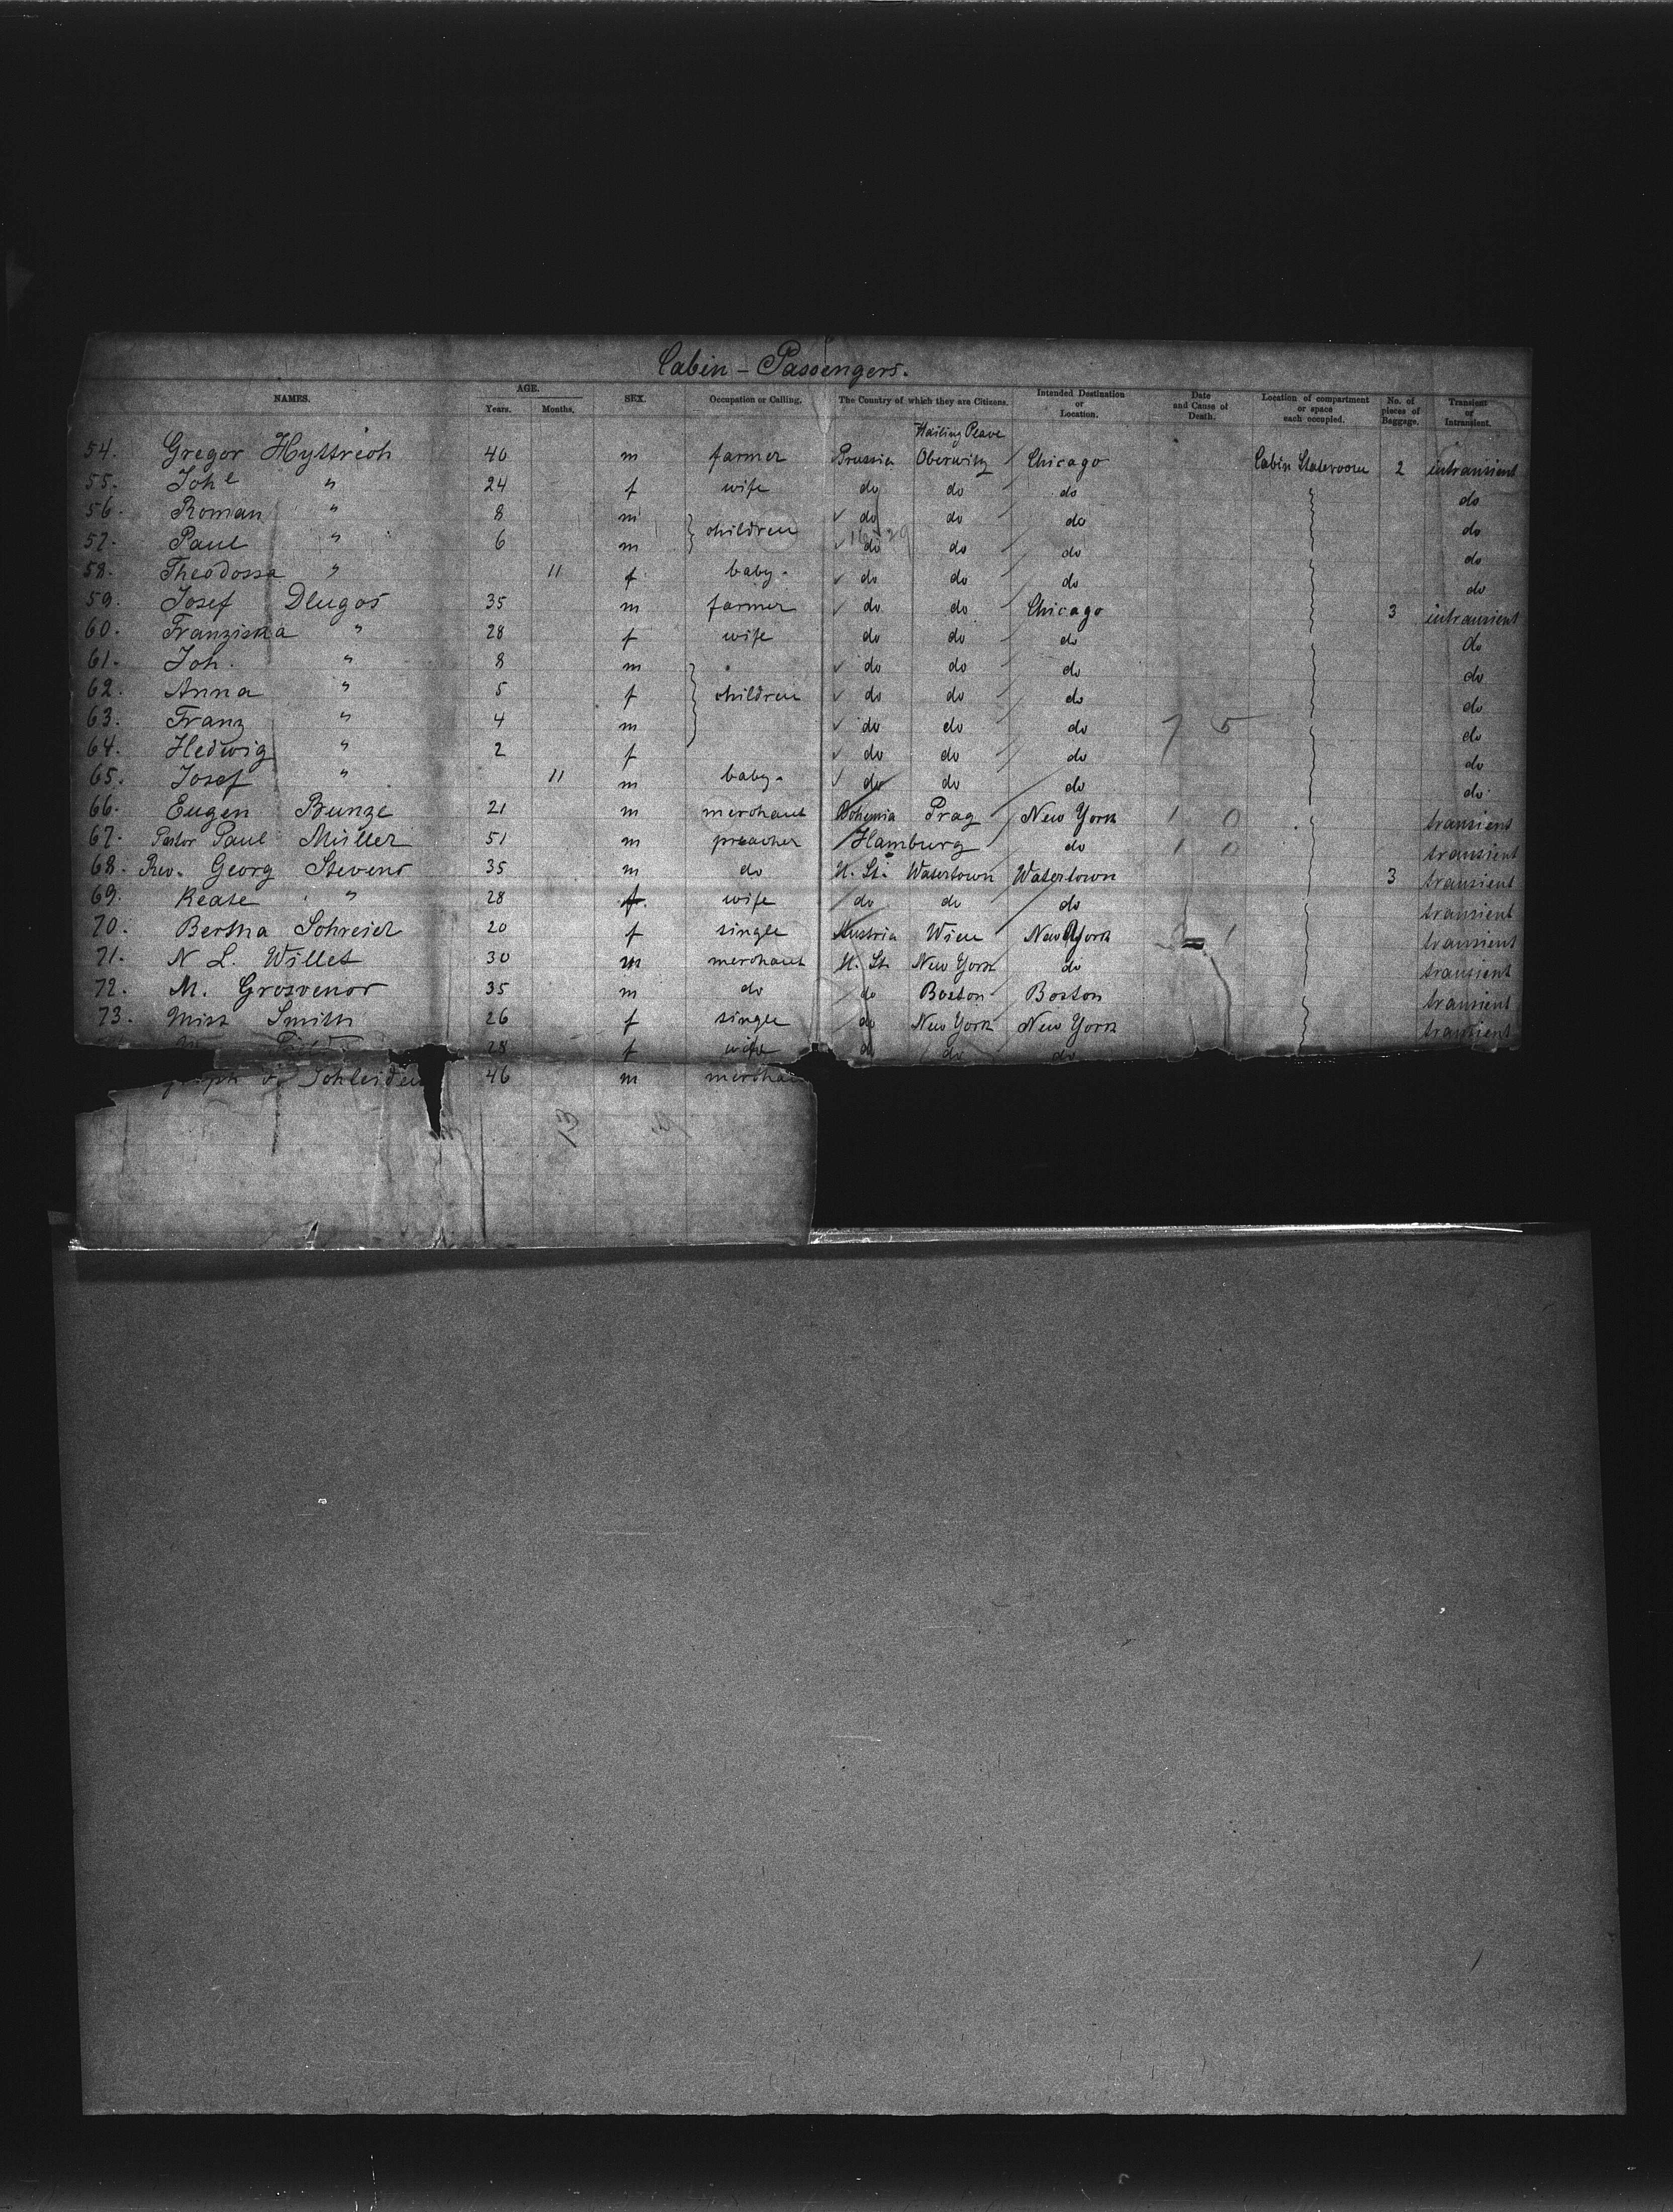 Cabin - Passengers.
NAMES. AGE. Years. Months. SEX. Occupation or Calling. The Country of which they are Citizens. Intended Destination or Location. Date and Cause of Death. Location of compartment or space each occupied. No. of pieces of Baggage. Transient or Intransient.
54. Gregor Hyttreoh 40 m farmer Prussia Oberwitz Chicago Cabin Stateroom 2 intransient
55. Joh e " 24 f wife do do do do
56. Roman " 8 m children do do do do
57. Paul " 6 m do do do do
58. Theodossa " 11 f baby. do do do do
59. Josef Dlugos 35 m farmer do do Chicago 3 intransient
60. Franziska " 28 f wife do do do do
61. Joh. " 8 m do do do do
62. Anna " 5 f children do do do do
63. Franz " 4 m do do do 7 5 do
64. Hedwig " 2 f do do do do
65. Josef " 11 m baby. do do do do
66. Eugen Bunze 21 m merchant Bohemia Prag New York 1 0 transient
67. Pastor Paul Müller 51 m preacher Hamburg do 1 0 transient
68. Rev. Georg Stevens 35 m do U. St. Watertown Watertown 3 transient
69. Rease " 28 f. wife do do do transient
70. Bertha Schreier 20 f single Austria Wien New York 1 transient
71. N L. Willet 30 m merchant U. St. New York do transient
72. M. Grosvenor 35 m do do Boston Boston transient
73. Miss Smith 26 f single do New York New York transient
28 f wife do do do
v. Schleiden 46 m merchan
13